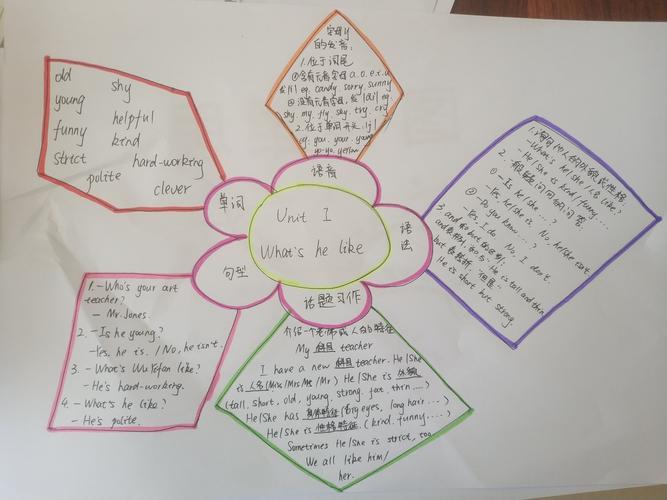 Unit 1
What's he like
单词
old
shy
young
helpful
funny
kind
strict
hard-working
polite
clever
语音
字母y
的发音:
1.位于词尾
①含有元音字母 a.o.e.u
发/i/ eg. candy. sorry. sunny
②没有元音字母,发/ai/ eg.
shy. my. fly. say. try. cry
2.位于单词开头. /j/
eg. you. your. young
yo-yo. yellow
语法
1.询问他人的外貌或性格:
-What's he/she/人名 like?
-He/She is kind/funny....
2.一般疑问句的问答:
① -Is he/she...?
-Yes, he/she is. No, he/she isn't
② -Do you know...?
-Yes, I do. No, I don't.
3. and 和 but 的区别:
and He is tall and thin
but "但是"
He is short but strong.
句型
1. -Who's your art
teacher?
- Mr. Jones.
2. -Is he young?
-Yes, he is. /No, he isn't.
3. -What's Wu Yifan like?
-He's hard-working.
4. -What's he like?
- He's polite.
话题习作
介绍一个老师或人的特征
My 科目 teacher
I have a new 科目 teacher. He/She
is 人名(Miss/Mrs/Ms/Mr) He/She is 外貌
(tall, short, old, young, strong, fat, thin....)
He/She has 身体特征(big eyes, long hair...)
He/She is 性格特征.(kind, funny....)
Sometimes He/She is strict, too.
We all like him/
her.